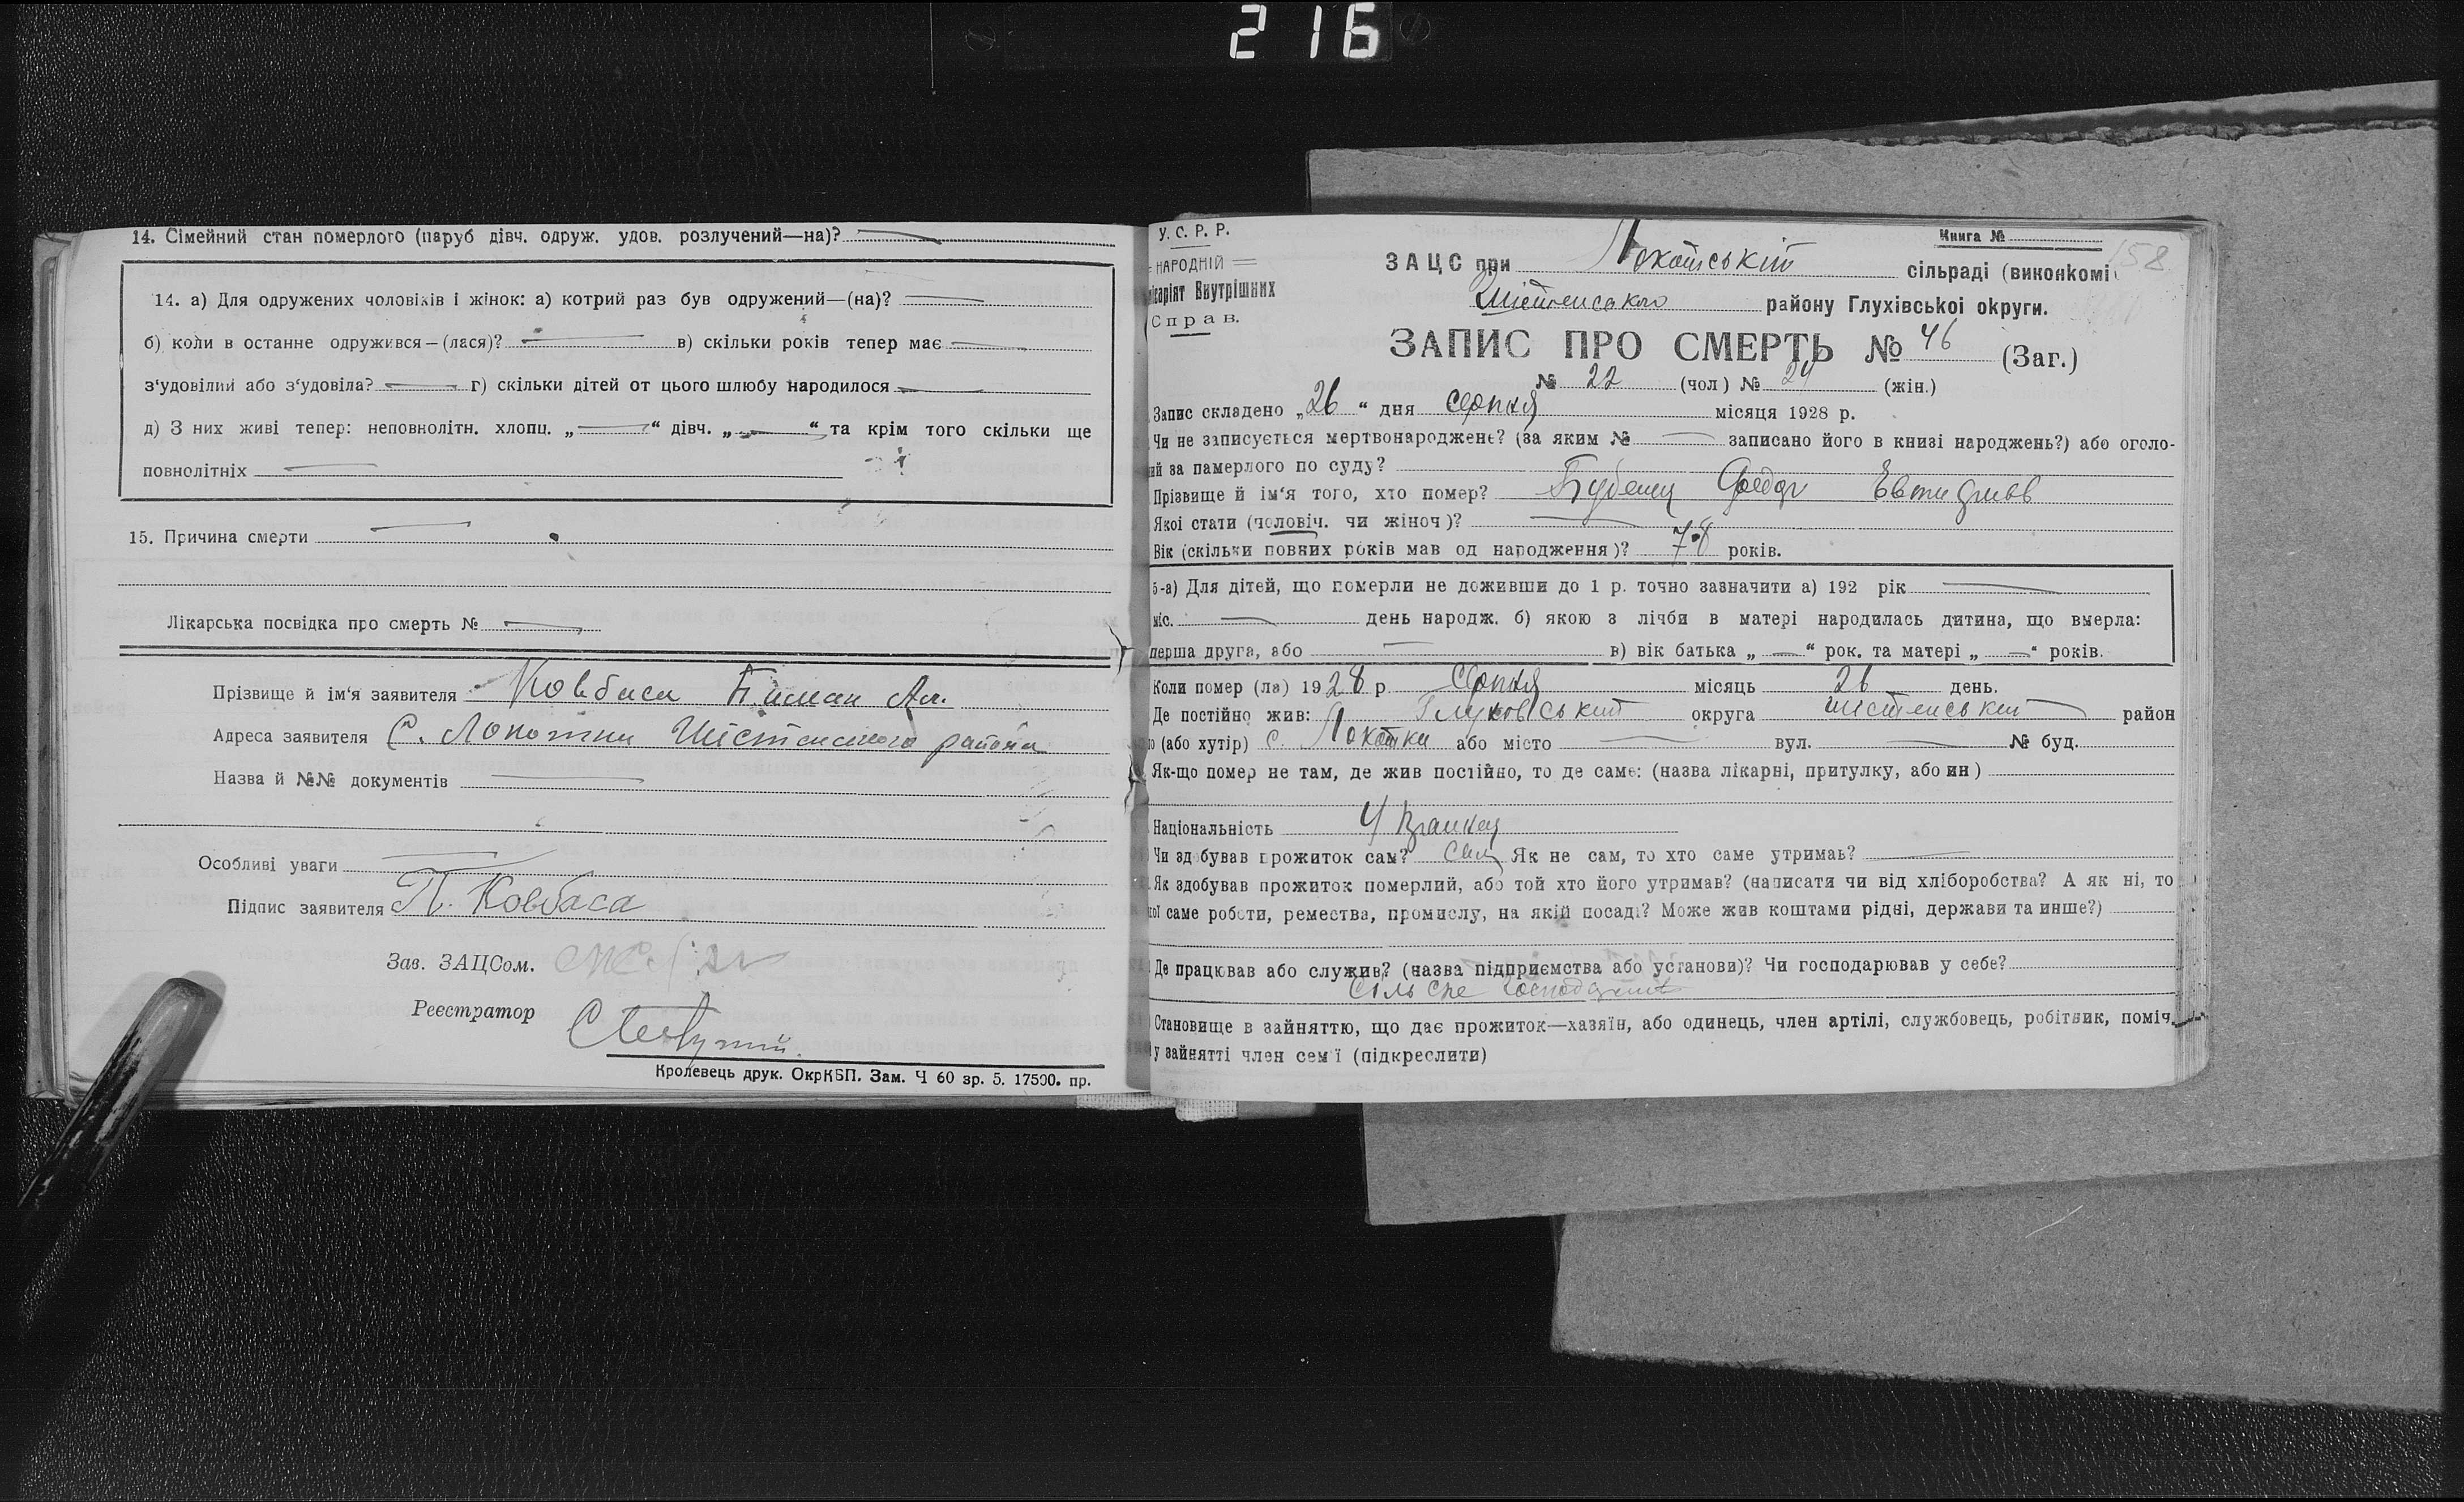 216
14. Сімейний стан померлого (паруб дівч. одруж. удов. розлучений—на)?
14. а) Для одружених чоловіків і жінок: а) котрий раз був одружений—(на)?
б) коли в останне одружився—(лася)? в) скільки років тепер має
з‘удовілий або з‘удовіла? г) скільки дітей от цього шлюбу народилося
д) З них живі тепер: неповнолітн. хлопц. „ — “ дівч. „ — “ та крім того скільки ще
повнолітніх
15. Причина смерти
Лікарська посвідка про смерть №
Прізвище й ім‘я заявителя Ковбаса
Адреса заявителя С. Локотки Шістенського района
Назва й №№ документів
Особливі уваги
Підпис заявителя П. Ковбаса
Зав. ЗАЦСом.
Реестратор
Кролевець друк. ОкрКБП. Зам. Ч 60 зр. 5. 17500. пр.
У. С. Р. Р.
НАРОДНІЙ
Внутрішних
Справ.
Книга №
158
ЗАЦС при Локотській сільраді (виконкомі
Шістенського району Глухівської округи.
ЗАПИС ПРО СМЕРТЬ № 46 (Заг.)
№ 22 (чол) № 24 (жін.)
Запис складено „26“ дня серпня місяця 1928 р.
Чи не записується мертвонароджене? (за яким № — записано його в книзі народжень?) або оголо-
ий за памерлого по суду?
Прізвище й ім‘я того, хто помер? Бубенец Федор
Якої стати (чоловіч. чи жіноч)?
Вік (скільки повних років мав од народження)? 78 років.
5-а) Для дітей, що померли не доживши до 1 р. точно зазначити а) 192 рік
міс. день народж. б) якою з лічби в матері народилась дитина, що вмерла:
перша друга, або в) вік батька „ — “ рок. та матері „ — “ років.
Коли помер (ла) 1928 р. Серпня місяць 26 день.
Де постійно жив: Глуховський округа Шістенський район
(або хутір) с. Локотки або місто вул. № буд.
Як-що помер не там, де жив постійно, то де саме: (назва лікарні, притулку, або ин)
Національність Украинец
Чи здобував прожиток сам? Сам Як не сам, то хто саме утримав?
Як здобував прожиток померлий, або той хто його утримав? (написати чи від хліборобства? А як ні, то
ої саме роботи, ремества, промислу, на якій посаді? Може жив коштами рідні, держави та инше?)
Де працював або служив? (назва підприємства або установи)? Чи господарював у себе?
Сільске
Становище в зайняттю, що дає прожиток—хазяїн, або одинець, член артілі, службовець, робітник, поміч.
у зайнятті член сем‘ї (підкреслити)